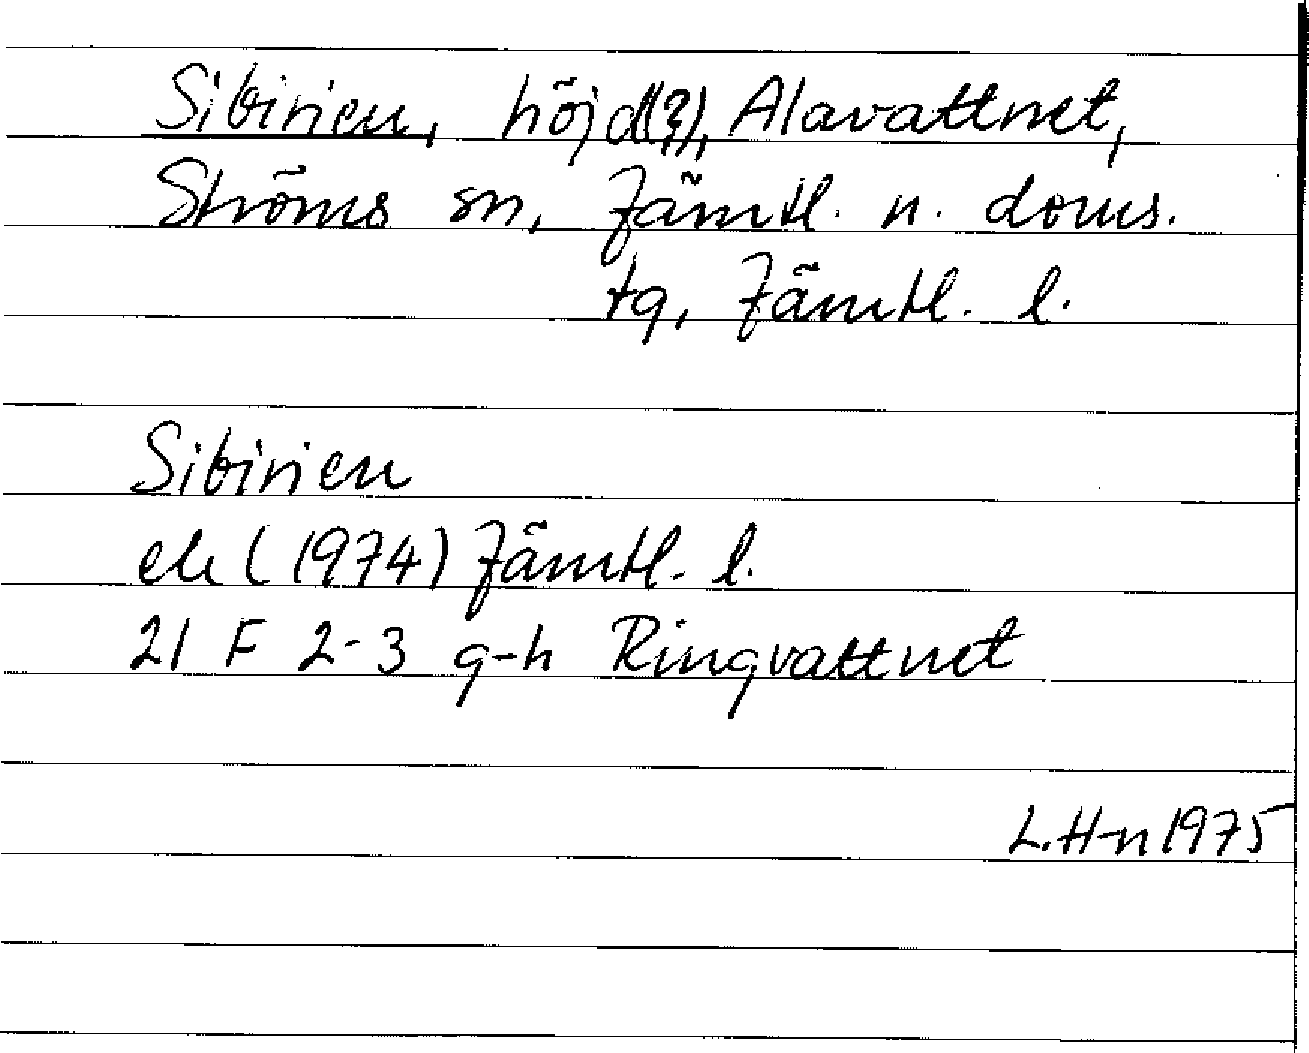 Sibirien, höjd(?), Alavattnet,
Ströms sn, Jämtl. n. doms.
tg, Jämtl. l.
Sibirien
ek (1974) Jämtl. l.
21 F 2-3 g-h Ringvattnet
L.H-n 1975